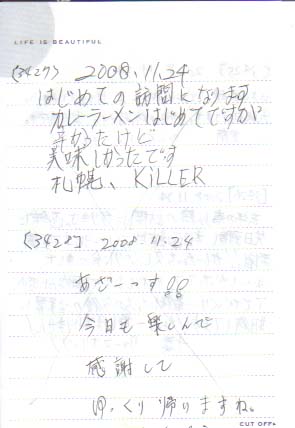 LIFE IS BEAUTIFUL
(3427) 2008.11.24
はじめての訪問になります
カレーラーメンはじめてですが
辛かったけど
美味しかったです
札幌、KiLLER
[3428] 2008 11.24
あざーっす!!
今日も楽しんで
感謝して
ゆっくり帰りますね。
CUT OFF